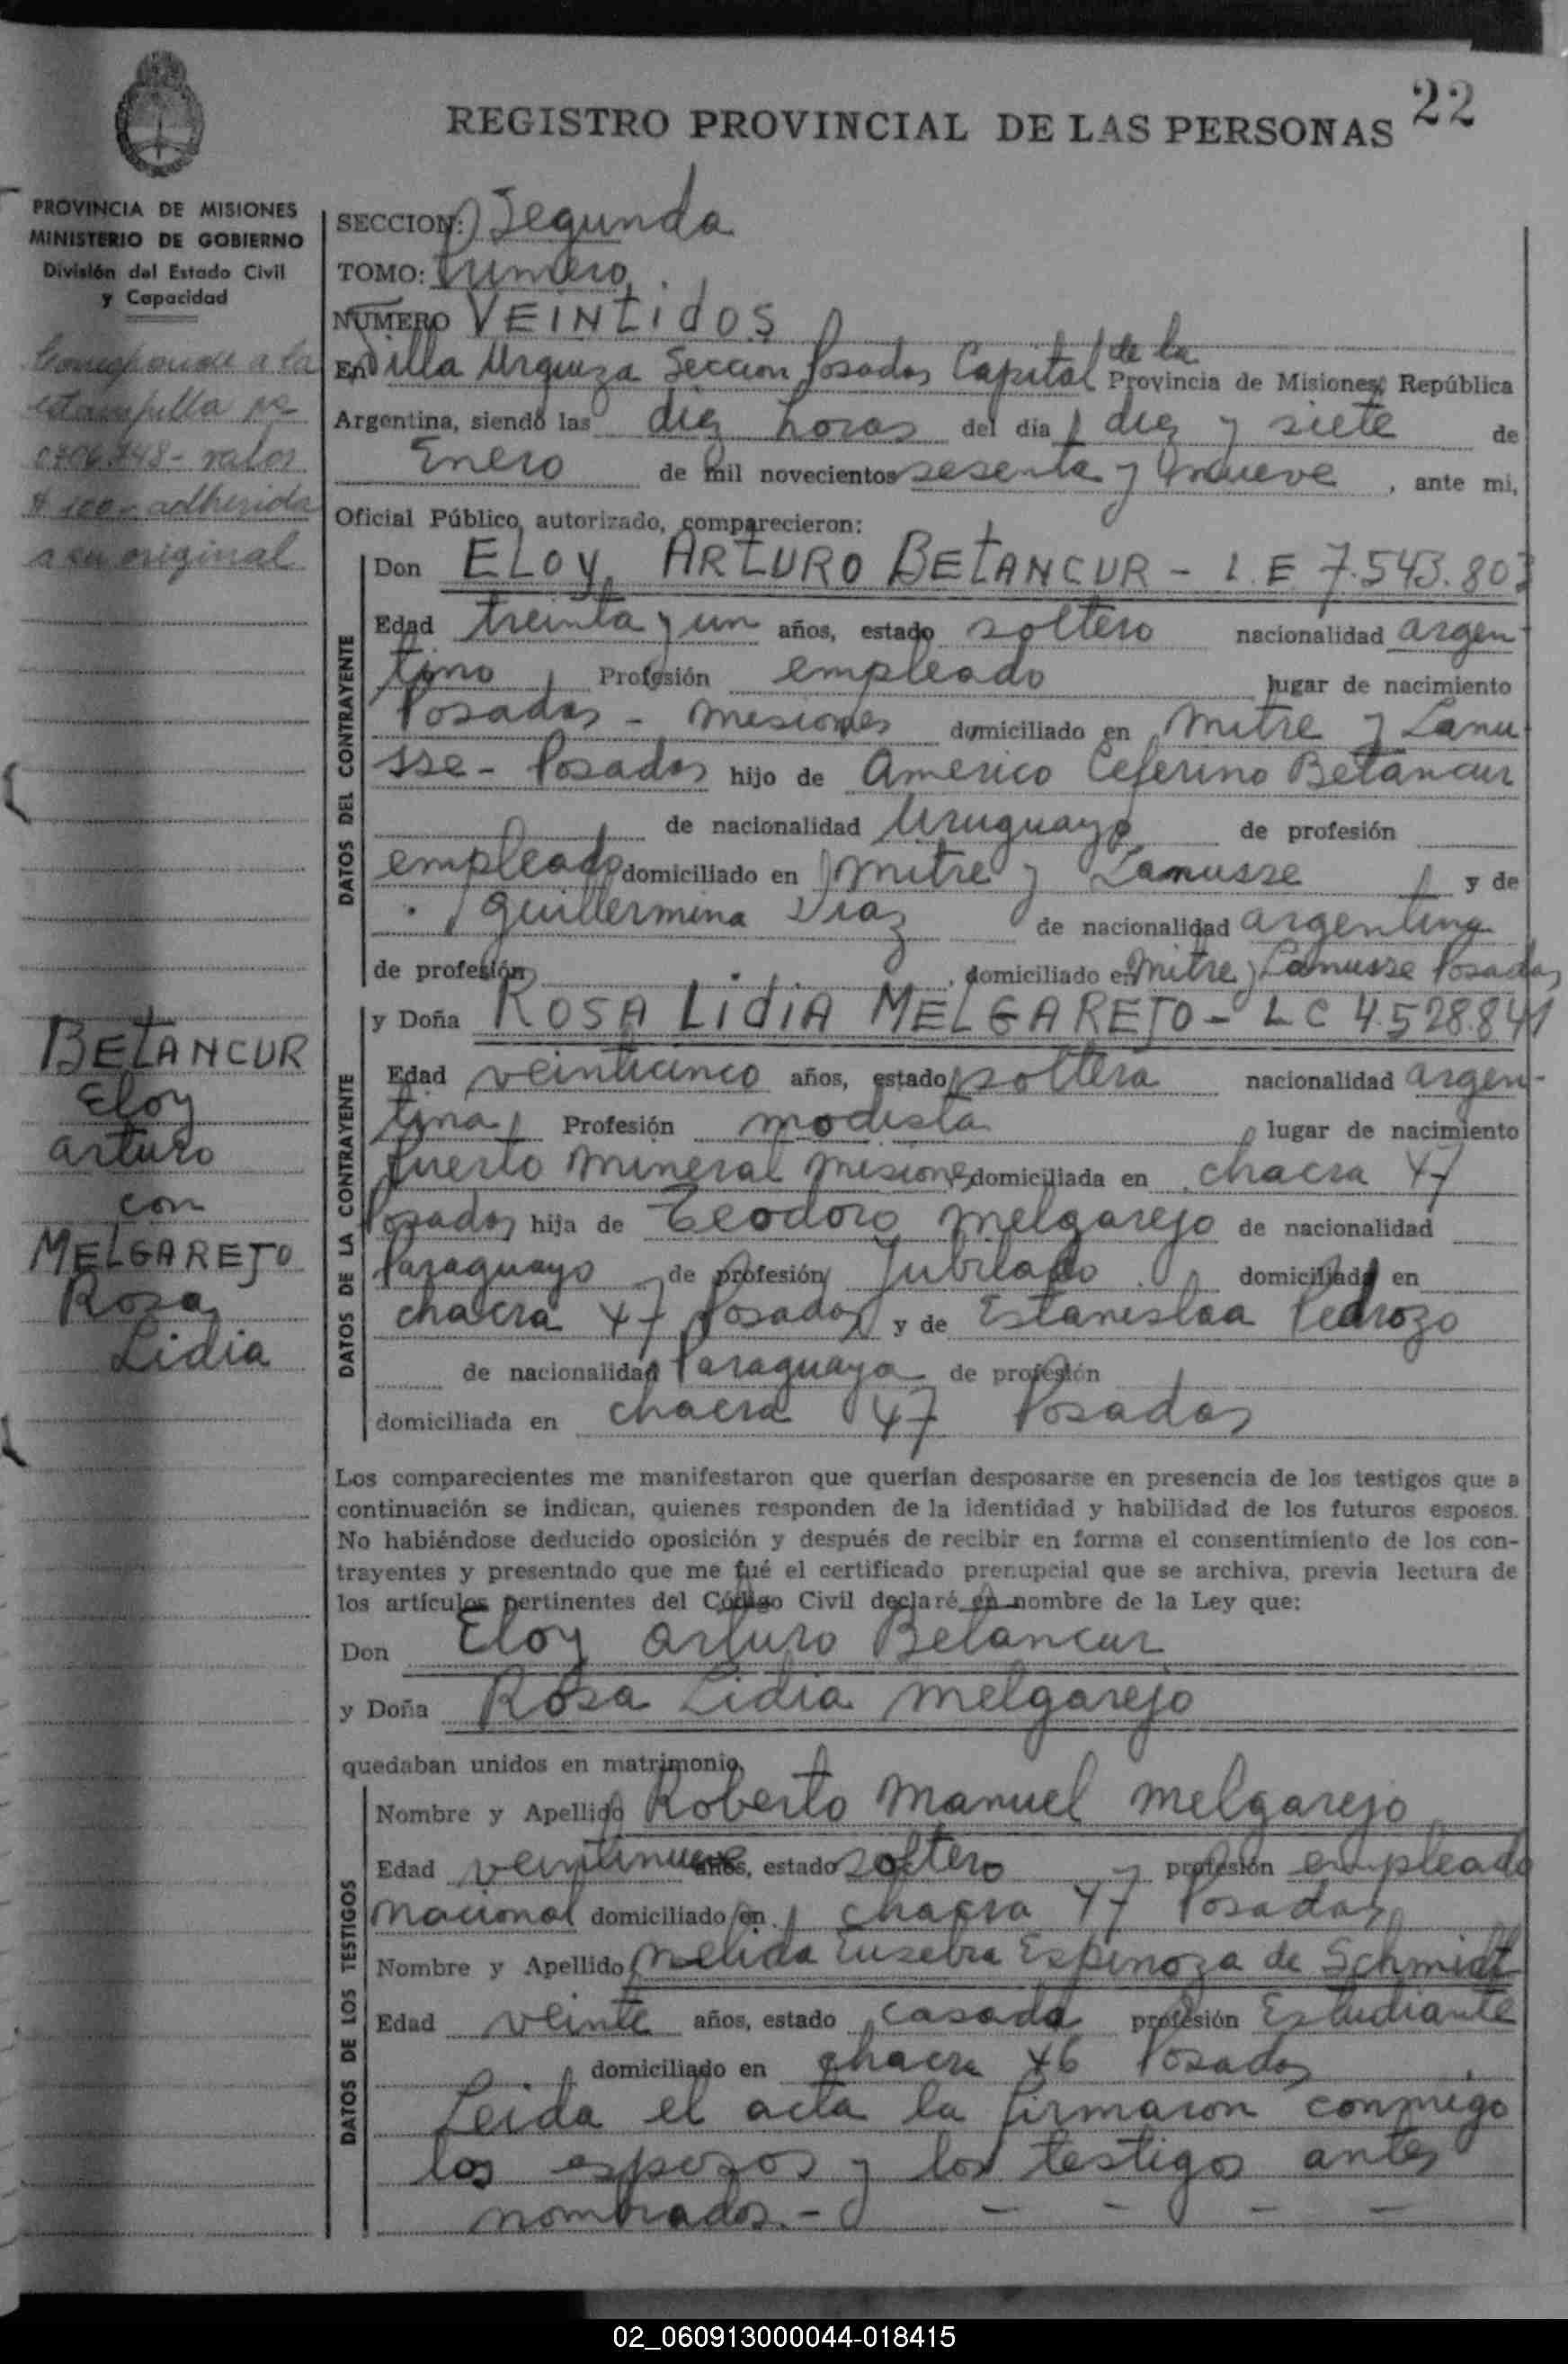 22
REGISTRO PROVINCIAL DE LAS PERSONAS
PROVINCIA DE MISIONES
MINISTERIO DE GOBIERNO
División del Estado Civil
y Capacidad
Corresponde a la
estampilla Nº
0706748- valor
$ 100- adherida
a su original
BETANCUR
Eloy
Arturo
con
MELGAREJO
Rosa
Lidia
SECCION: Segunda
TOMO: Primero
NUMERO VEINTIDOS
En Villa Urquiza Sección Posadas Capital de la Provincia de Misiones, República
Argentina, siendo las diez horas del día diez y siete de
Enero de mil novecientos sesenta y nueve, ante mi,
Oficial Público autorizado, comparecieron:
DATOS DEL CONTRAYENTE
Don ELOY ARTURO BETANCUR - L.E 7.543.803
Edad treinta y un años, estado soltero nacionalidad argen-
tino Profesión empleado lugar de nacimiento
Posadas - Misiones domiciliado en Mitre y Lanu-
sse - Posadas hijo de Americo Ceferino Betancur
de nacionalidad Uruguayo de profesión
empleado domiciliado en Mitre y Lanusse y de
Guillermina Diaz de nacionalidad argentina
de profesión , domiciliado en Mitre y Lanusse Posadas
DATOS DE LA CONTRAYENTE
y Doña ROSA LIDIA MELGAREJO - LC 4.528.841
Edad veinticinco años, estado soltera nacionalidad argen-
tina Profesión modista lugar de nacimiento
Puerto Mineral Misiones domiciliada en chacra 47
Posadas hija de Teodoro Melgarejo de nacionalidad
Paraguayo de profesión Jubilado domiciliado en
chacra 47 Posadas y de Estanislaa Pedrozo
de nacionalidad Paraguaya de profesión
domiciliada en chacra 47 Posadas
Los comparecientes me manifestaron que querían desposarse en presencia de los testigos que a
continuación se indican, quienes responden de la identidad y habilidad de los futuros esposos.
No habiéndose deducido oposición y después de recibir en forma el consentimiento de los con-
trayentes y presentado que me fué el certificado prenupcial que se archiva, previa lectura de
los artículos pertinentes del Código Civil declaré en nombre de la Ley que:
Don Eloy Arturo Betancur
y Doña Rosa Lidia Melgarejo
quedaban unidos en matrimonio.
DATOS DE LOS TESTIGOS
Nombre y Apellido Roberto Manuel Melgarejo
Edad veintinueve años, estado soltero profesión empleado
nacional domiciliado en chacra 47 Posadas
Nombre y Apellido Nelida Eusebia Espinoza de Schmidt
Edad veinte años, estado casada profesión Estudiante
domiciliado en chacra 46 Posadas
Leida el acta la firmaron conmigo
los esposos y los testigos antes
nombrados.- - - - -
02_060913000044-018415